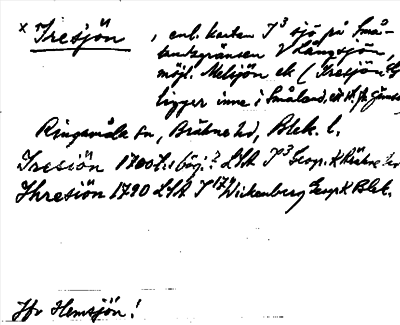 x Tresjön, enl. kartan I³ sjö på Små-
landsgränsen V Långsjön,
möjl. Melsjön el. (Tresjön
ligger inne i Småland,
Ringamåla sn, Bräkne hd, Blek. l.
Tresiön 1700t.s börj.? LSA I³ Geogr. K Bräkne
Thresiön 1790 LSA I Wickenberg Geogr K Blek.
Jfr Hemsjön!